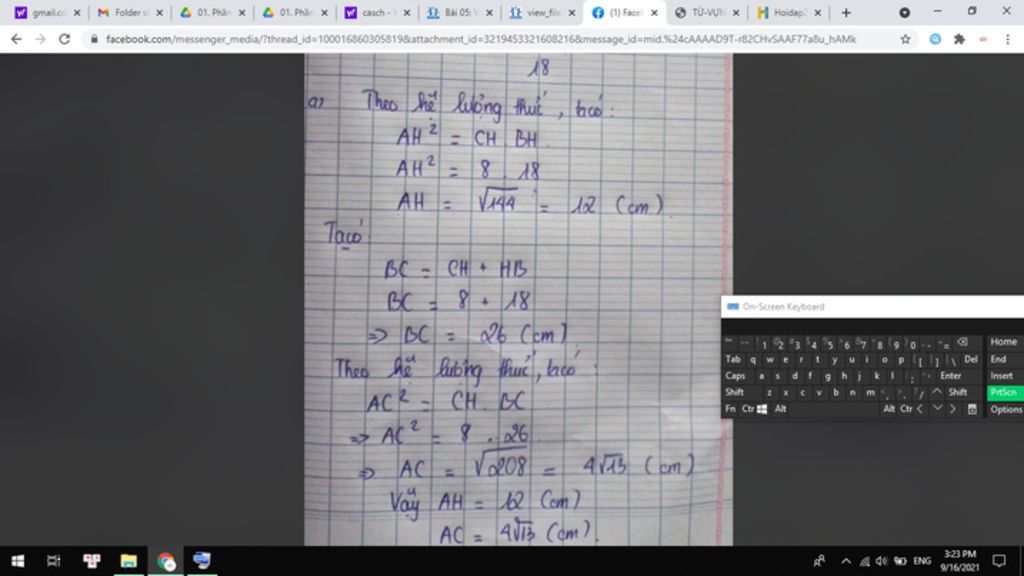 gmail.co
Folder s
01. Phân
01. Phân
casch -
Bài 05:
view_file
(1) Face
TỪ-VỰN
Hoidap2
facebook.com/messenger_media/?thread_id=100016860305819&attachment_id=3219453321608216&message_id=mid.%24cAAAAD9T-r82CHvSAAF77a8u_hAMk
18
a) Theo hệ lượng thức, ta có:
AH² = CH . BH
AH² = 8 . 18
AH = √144 = 12 (cm)
Ta có
BC = CH + HB
BC = 8 + 18
=> BC = 26 (cm)
Theo hệ lượng thức, ta có:
AC² = CH . BC
=> AC² = 8 . 26
=> AC = √208 = 4√13 (cm)
Vậy AH = 12 (cm)
AC = 4√13 (cm).
On-Screen Keyboard
1 2 3 4 5 6 7 8 9 0 - = Home
Tab q w e r t y u i o p [ ] \ Del End
Caps a s d f g h j k l ; ' Enter Insert
Shift z x c v b n m , . / Shift PrtScn
Fn Ctr Alt Alt Ctr Options
ENG
3:23 PM
9/16/2021